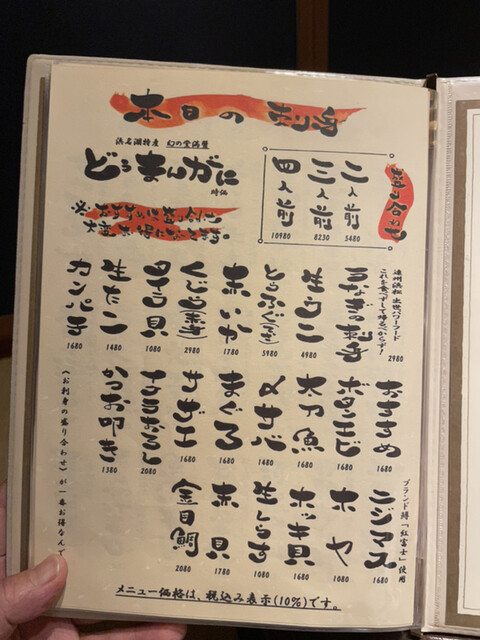 本日の刺身
浜名湖特産 幻の堂満蟹
どうまんがに
時価
※おすすめに盛り合わせ
大変お得になってます。
盛り合わせ
二人前
5480
三人前
8230
四人前
10980
遠州浜松 出世パワーフード
これを食べずして帰るべからず!
うなぎの刺身
2980
生うに
4980
とらふぐ(てっさ)
5980
赤いか
1780
くじら(赤身)
2980
タイラ貝
1080
生たこ
1480
カンパチ
1680
おすすめ
1680
ボタンエビ
1680
太刀魚
1680
〆サバ
1480
まぐろ
1680
サザエ
1680
ナマおろし
2080
かつお叩き
1380
ブランド鱒「紅富士」使用
ニジマス
1680
ホヤ
1080
ホッキ貝
1680
生しらす
1080
赤貝
1780
金目鯛
2080
(お刺身の盛り合わせ)が一番お得なんで
メニュー価格は、税込み表示(10%)です。